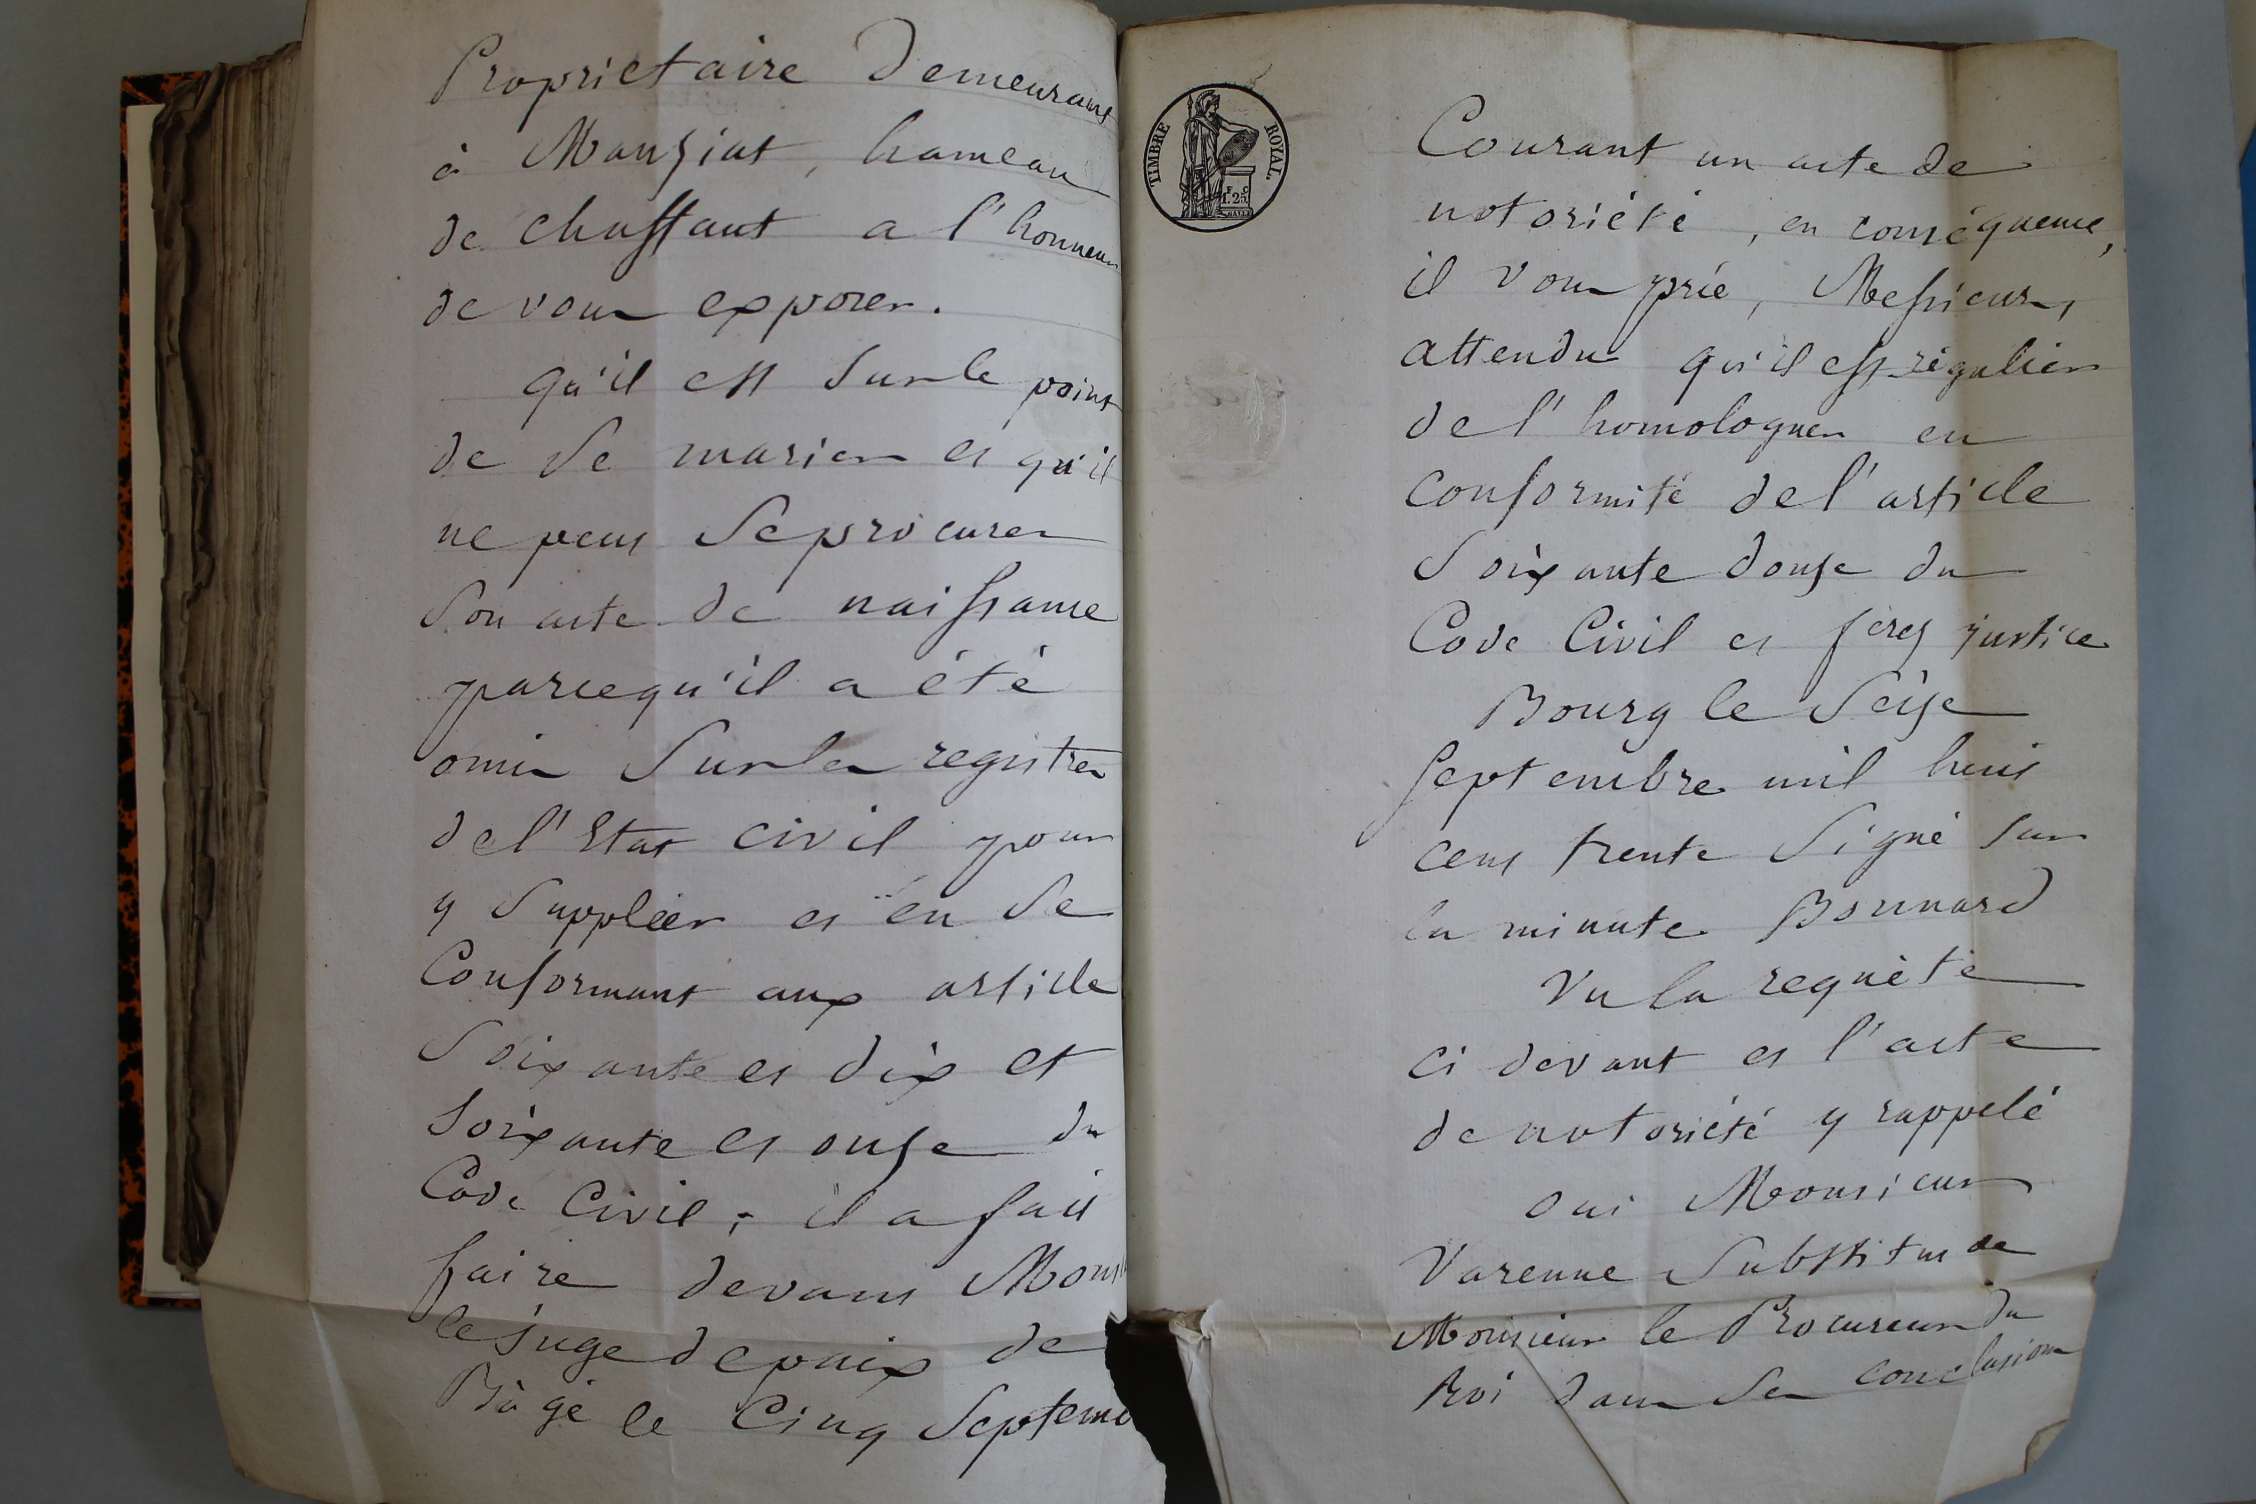 Propriétaire demeurant
à Manziat, hameau
de Chassant a l'honneur
de vous exposer.
qu'il est sur le point
de se marier et qu'il
ne peut se procurer
son acte de naissance
parcequ'il a été
omis sur les registres
de l'Etat civil pour
y suppléer et en se
Conformant aux article
Soixante et dix et
soixante et onze du
Code Civil, il a fait
faire devant Mons
le juge de paix de
Bàgé le Cinq Septem
TIMBRE ROYAL
1F. 25C
Courant un acte de
notoriété, en conséquence,
il vous prie, Messieurs,
attendu qu'il est régulier
de l'homologuer en
conformité de l'article
Soixante douze du
Code Civil et ferez justice
Bourg le Seize
Septembre mil huit
cent trente Signé sur
la minute Bonnard
Vu la requète
ci devant et l'acte
de notoriété y rappelé
oui Monsieur
Varenne Substitut de
Monsieur le Procureur du
Roi dans ses conclusions